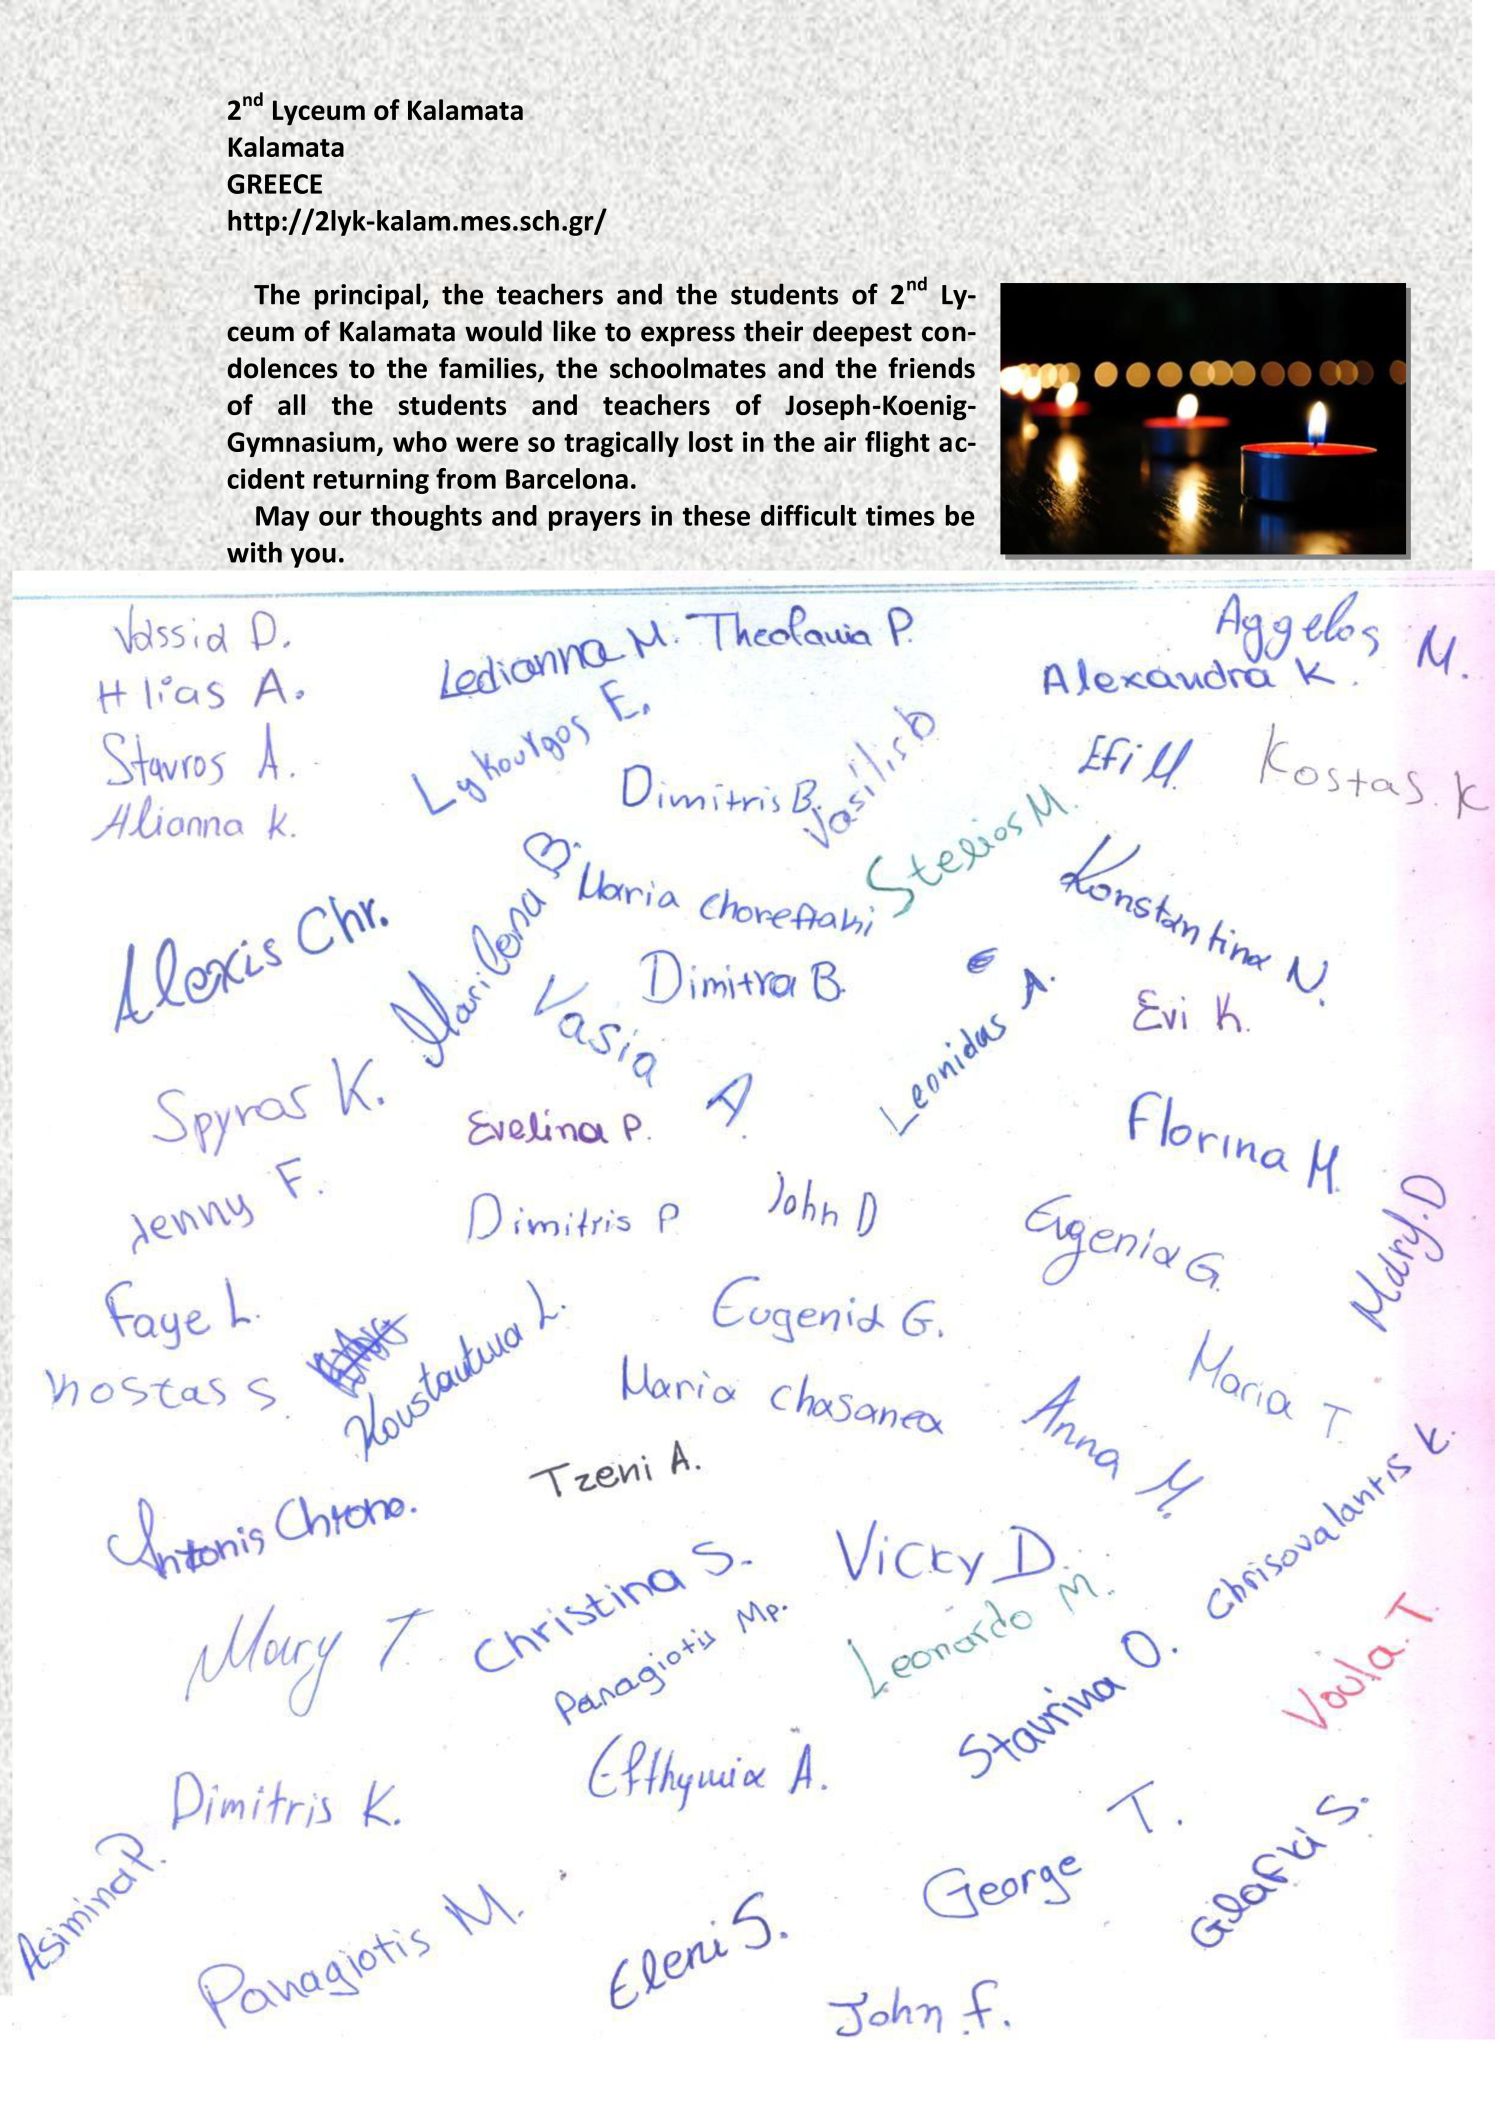 2nd Lyceum of Kalamata
Kalamata
GREECE
http://2lyk-kalam.mes.sch.gr/
The principal, the teachers and the students of 2nd Ly-
ceum of Kalamata would like to express their deepest con-
dolences to the families, the schoolmates and the friends
of all the students and teachers of Joseph-Koenig-
Gymnasium, who were so tragically lost in the air flight ac-
cident returning from Barcelona.
May our thoughts and prayers in these difficult times be
with you.
Vassia D.
Ledianna M.
Theofania P.
Aggelos M.
Hlias A.
Alexandra K.
Lykourgos E.
Stavros A.
Dimitris B.
Vasilis D
Efi M.
Kostas. K
Alianna K.
Stelios M.
Marilena B.
Maria Choreftaki
Konstantina N.
Alexis Chr.
Dimitra B.
Vasia A.
Leonidas A.
Evi K.
Spyros K.
Evelina P.
Florina M.
Jenny F.
Dimitris P
John D
Eugenia G.
Mary.D
Faye L.
Eugenia G.
Kostas S.
Konstantina L.
Maria Chasanea
Maria T.
Anna M.
Tzeni A.
Antonis Chrono.
Vicky D.
Chrisovalantis K.
Mary T.
Christina S.
Panagiotis Mp.
Leonardo M.
Stavrina O.
Voula. T.
Dimitris K.
Efthymia A.
George T.
Glafki S.
Asimina P.
Panagiotis M.
Eleni S.
John F.